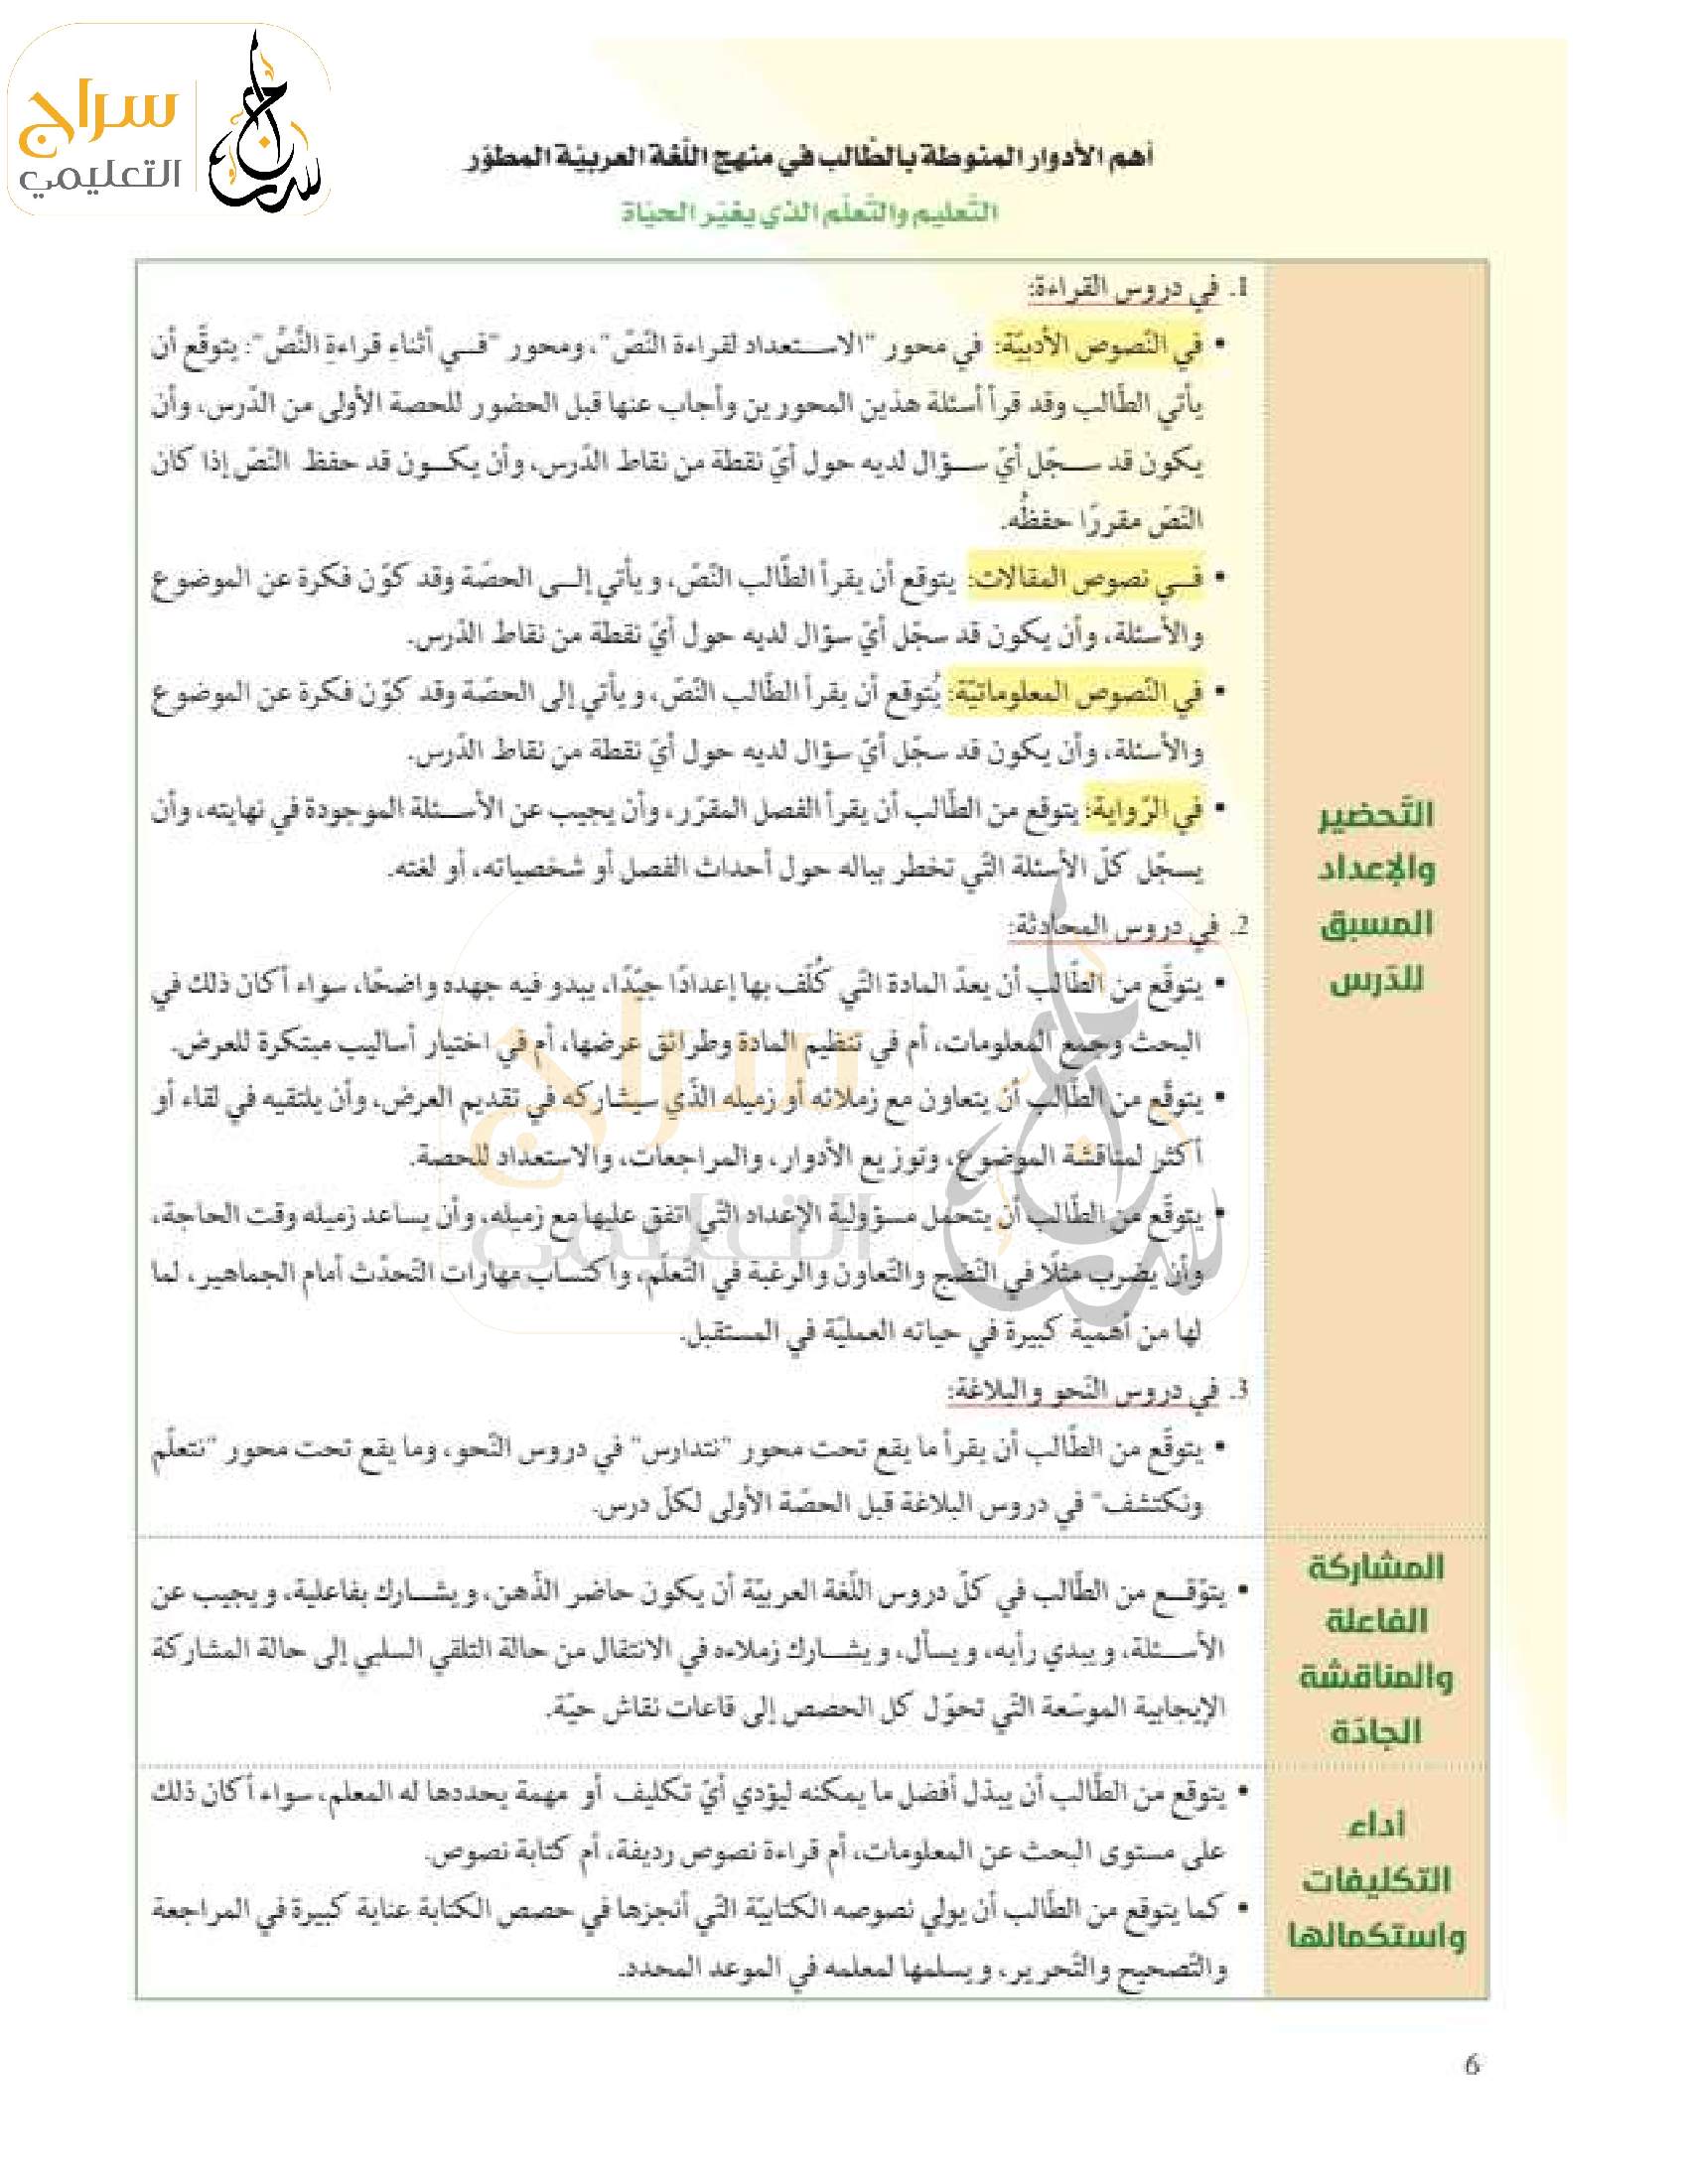 سراج
التعليمي
أهم الأدوار المنوطة بالطّالب في منهج اللّغة العربيّة المطوّر
التّعليم والتّعلّم الذي يغيّر الحيّاة
1. في دروس القراءة:
• في النّصوص الأدبيّة: في محور "الاستعداد لقراءة النّصّ"، ومحور "في أثناءِ قراءةِ النَّصِّ": يتوقّع أن
يأتي الطّالب وقد قرأ أسئلة هذين المحورين وأجاب عنها قبل الحضور للحصة الأولى من الدّرس، وأن
يكون قد سجّل أيّ سؤال لديه حول أيّ نقطة من نقاط الدّرس، وأن يكون قد حفظ النّصّ إذا كان
النّصّ مقررًا حفظُه.
• في نصوص المقالات: يتوقع أن يقرأ الطّالب النّصّ، ويأتي إلى الحصّة وقد كوّن فكرة عن الموضوع
والأسئلة، وأن يكون قد سجّل أيّ سؤال لديه حول أيّ نقطة من نقاط الدّرس.
• في النّصوص المعلوماتيّة: يُتوقع أن يقرأ الطّالب النّصّ، ويأتي إلى الحصّة وقد كوّن فكرة عن الموضوع
والأسئلة، وأن يكون قد سجّل أيّ سؤال لديه حول أيّ نقطة من نقاط الدّرس.
• في الرّواية: يتوقع من الطّالب أن يقرأ الفصل المقرّر، وأن يجيب عن الأسئلة الموجودة في نهايته، وأن
يسجّل كلّ الأسئلة الّتي تخطر بباله حول أحداث الفصل أو شخصياته، أو لغته.
2. في دروس المحادثة:
• يتوقّع من الطّالب أن يعدّ المادة الّتي كُلّف بها إعدادًا جيّدًا، يبدو فيه جهده واضحًا، سواء أكان ذلك في
البحث وجمع المعلومات، أم في تنظيم المادة وطرائق عرضها، أم في اختيار أساليب مبتكرة للعرض.
• يتوقّع من الطّالب أن يتعاون مع زملائه أو زميله الّذي سيشاركه في تقديم العرض، وأن يلتقيه في لقاء أو
أكثر لمناقشة الموضوع، وتوزيع الأدوار، والمراجعات، والاستعداد للحصة.
• يتوقّع من الطّالب أن يتحمل مسؤولية الإعداد الّتي اتفق عليها مع زميله، وأن يساعد زميله وقت الحاجة،
وأن يضرب مثلًا في النّضج والتّعاون والرغبة في التّعلّم، واكتساب مهارات التّحدّث أمام الجماهير، لما
لها من أهمية كبيرة في حياته العمليّة في المستقبل.
3. في دروس النّحو والبلاغة:
• يتوقّع من الطّالب أن يقرأ ما يقع تحت محور "نتدارس" في دروس النّحو، وما يقع تحت محور "نتعلّم
ونكتشف" في دروس البلاغة قبل الحصّة الأولى لكلّ درس.
التّحضير
والإعداد
المسبق
للدّرس
• يتوّقع من الطّالب في كلّ دروس اللّغة العربيّة أن يكون حاضر الذّهن، ويشارك بفاعلية، ويجيب عن
الأسئلة، ويبدي رأيه، ويسأل، ويشارك زملاءه في الانتقال من حالة التلقي السلبي إلى حالة المشاركة
الإيجابية الموسّعة الّتي تحوّل كل الحصص إلى قاعات نقاش حيّة.
المشاركة
الفاعلة
والمناقشة
الجادّة
• يتوقع من الطّالب أن يبذل أفضل ما يمكنه ليؤدي أيّ تكليف أو مهمة يحددها له المعلم، سواء أكان ذلك
على مستوى البحث عن المعلومات، أم قراءة نصوص رديفة، أم كتابة نصوص.
• كما يتوقع من الطّالب أن يولي نصوصه الكتابيّة الّتي أنجزها في حصص الكتابة عناية كبيرة في المراجعة
والتّصحيح والتّحرير، ويسلمها لمعلمه في الموعد المحدد.
أداء
التكليفات
واستكمالها
سراج
التعليمي
6